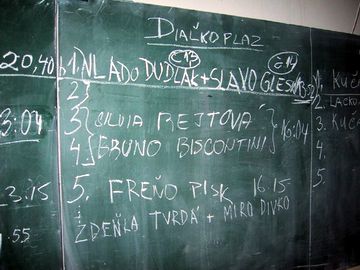 DIAĽKOPLAZ
C13 C14
20,40 1. VLADO DUDLÁK + SLAVO GLESK
2.
3. SILVIA REJTOVÁ
4. BRUNO BISCONTINI 16:04
5. FREŇO PISK 16.15
ZDEŇKA TVRDÁ + MIRO DIVKO
3:04
3:15
.55
1. KUČ
2. LACKO
3. KUČA
4.
5.